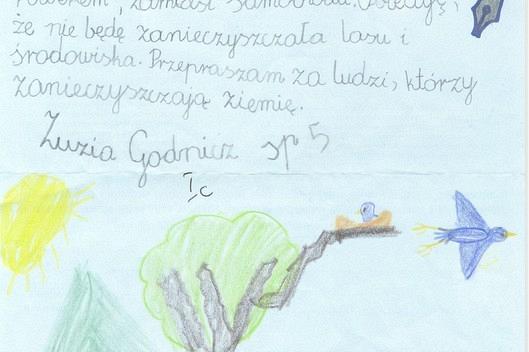 rowerem, zamiast samochodu. Obiecuję,
że nie będę zanieczyszczała lasu i
środowiska. Przepraszam za ludzi, którzy
zanieczyszczają ziemię.
Zuzia Godnicz sp 5
I c